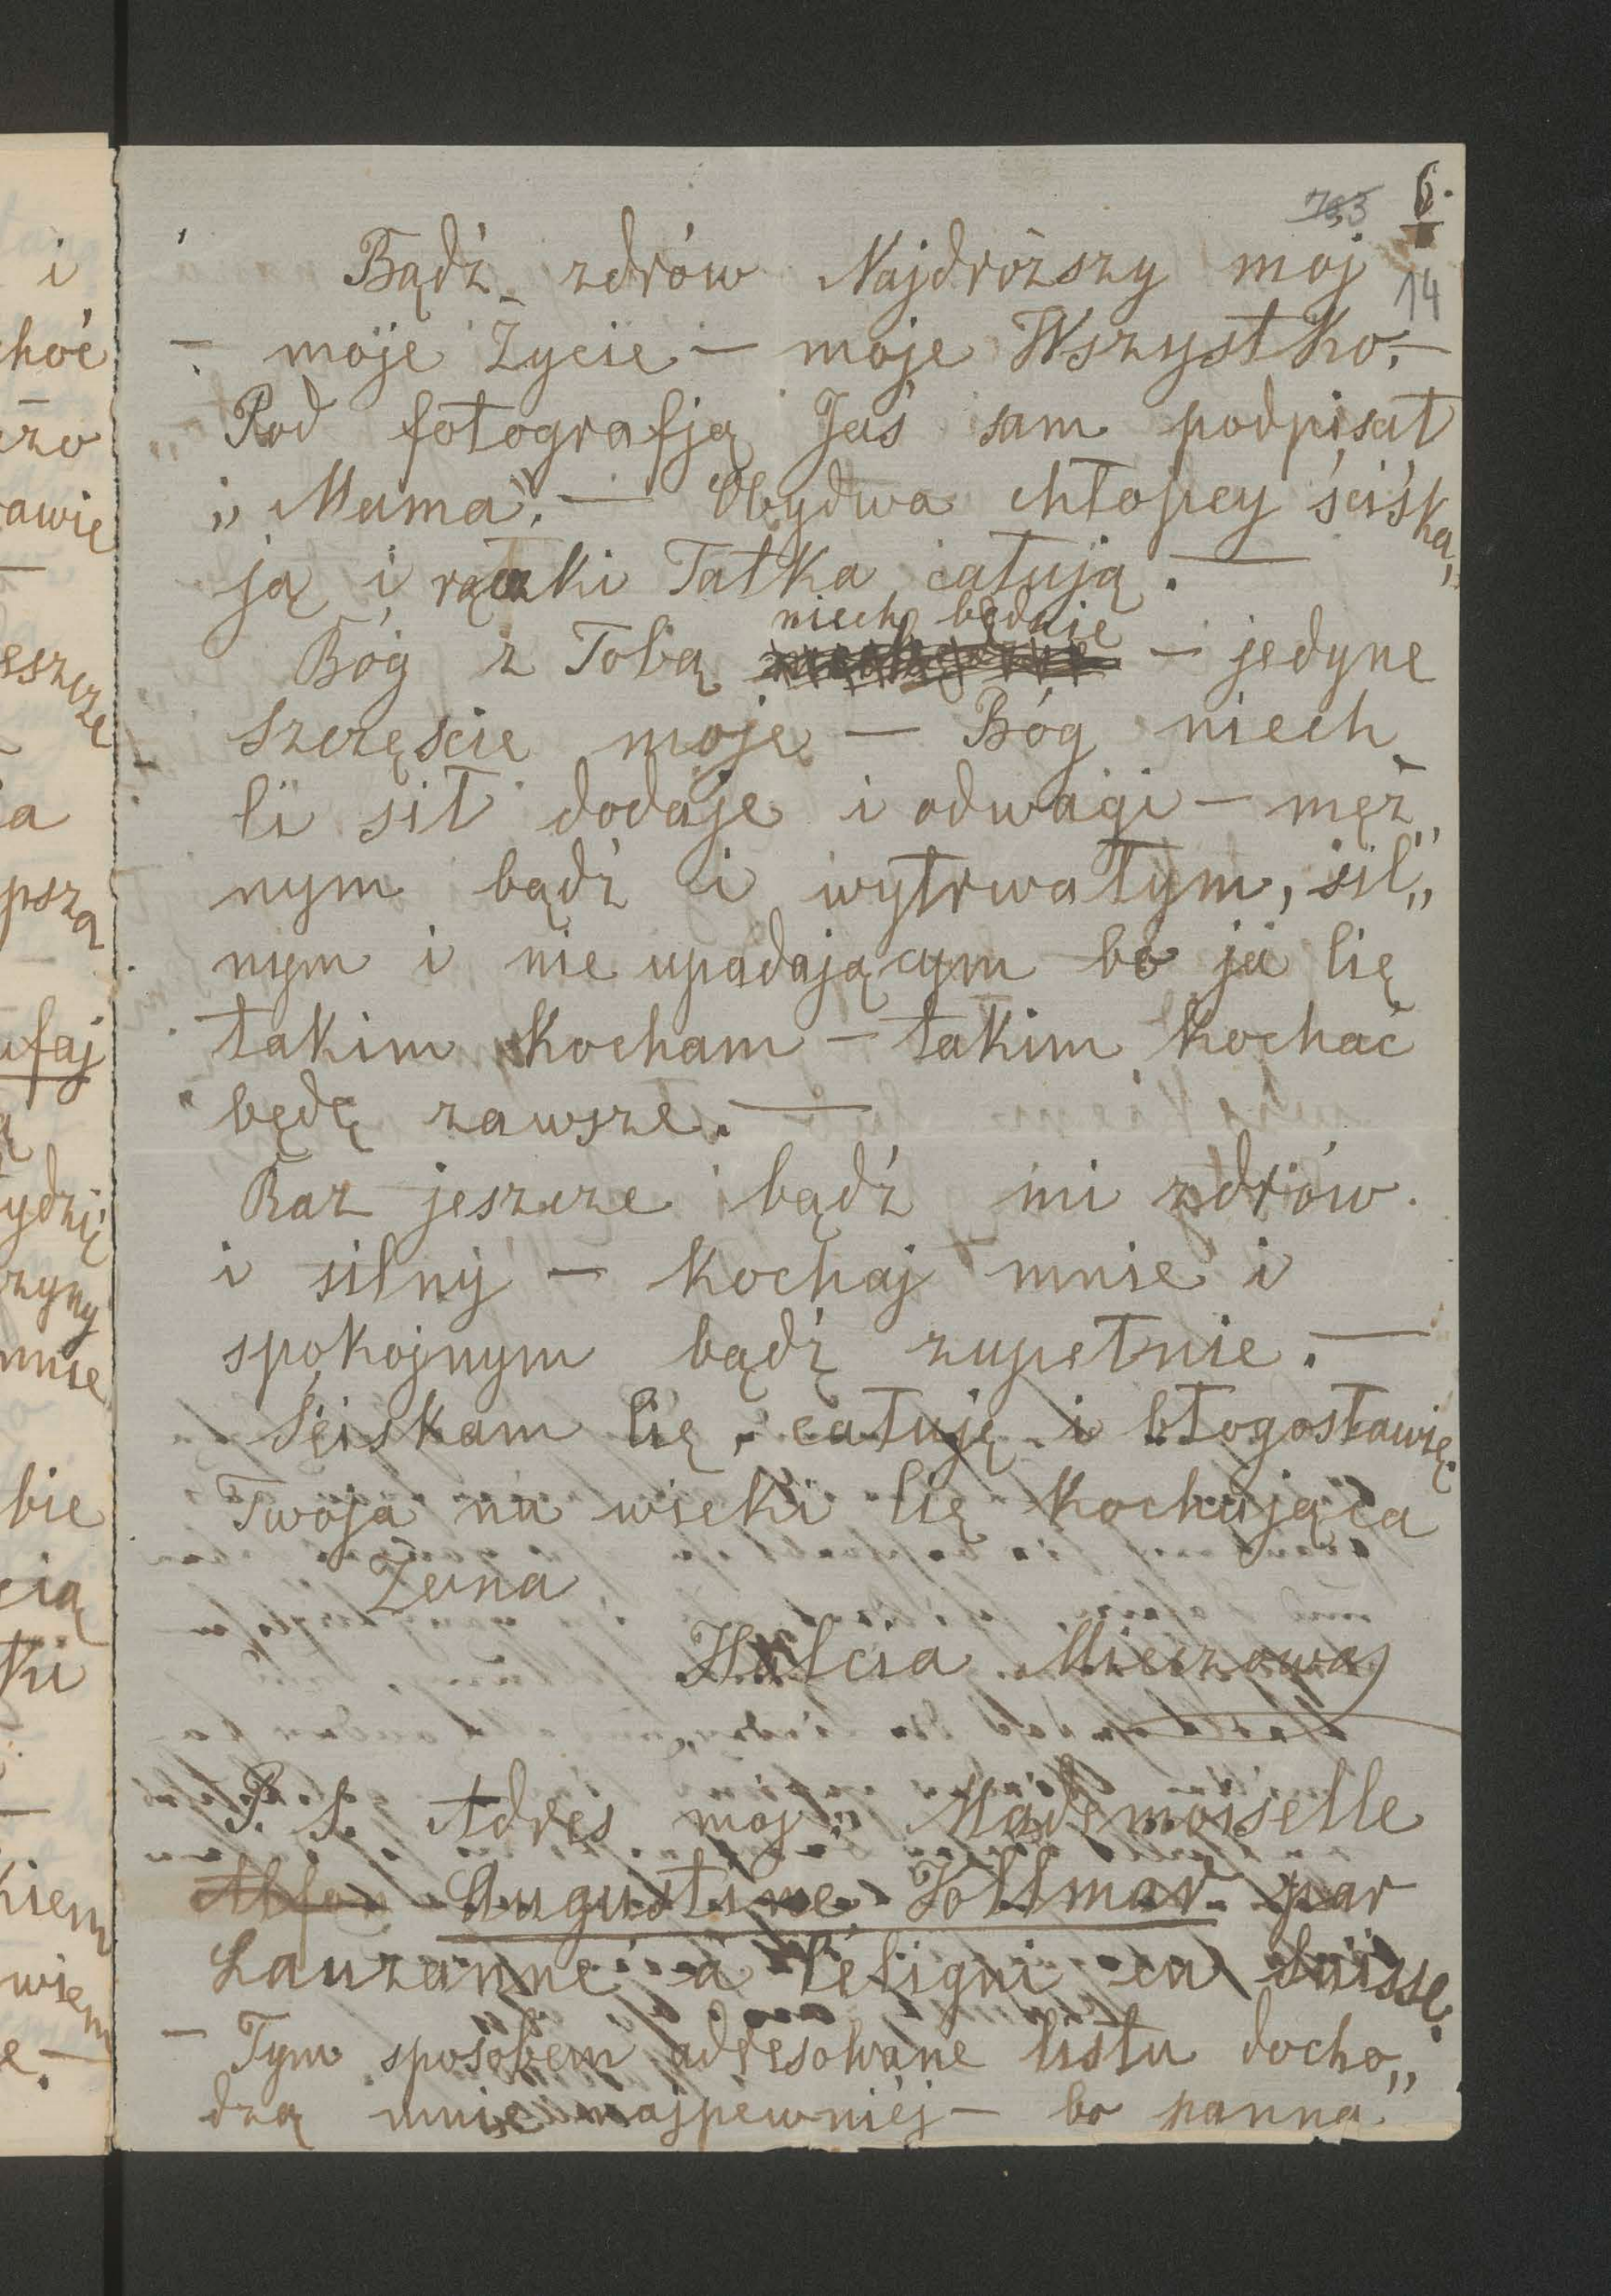 i
hoć
awie
eszcze
a
psza
ufaj
ą
ydzię
zyny
mnie
bie
cią
ki
kiem
wiem
e. —
733 6.
14
Bądź zdrów Najdróższy mój
— moje Życie — moje Wszystko, —
Pod fotografją Jaś sam podpisał
„Mama". — Obydwa chłopcy ściska„
ją i rączki Tatka całują. —
niech będzie
Bóg z Tobą — jedyne
szczęście moje — Bóg niech
Ci sił dodaje i odwagi — męż„
nym bądź i wytrwałym, sil„
nym i nie upadającym bo ja Cię
takim kocham — takim kochać
będę zawsze. —
Raz jeszcze bądź mi zdrów
i silny — kochaj mnie i
spokojnym bądź zupełnie. —
Sciskam Cię, całuję i błogosławię.
Twoja na wieki Cię kochająca
Żona
Halcia Mieczowa
P. S. Adres moj: Mademoiselle
Alfon Augustine Vollmar par
Lauzanne à Pétigni en Suisse.
— Tym sposobem adresowane listu docho„
dzą mnie najpewniéj — bo panna